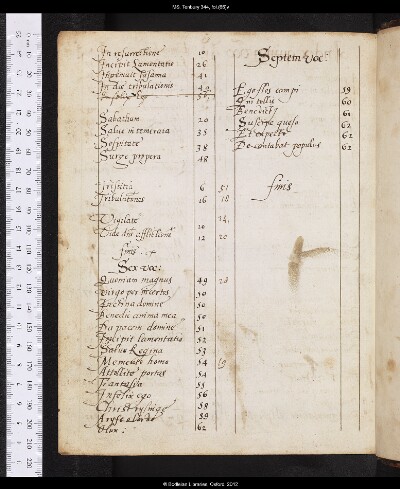 MS. Tenbury 344, fol.(55)v
In resurrectione 10
Incipit Lamentatio 26
Ingemuit Susanna 41
In die tribulationis 49
Sabathum 20
Salue intemerata 35
Sospitate 38
Surge propera 48
Tristitia 6 51
Tribulationes 16 18
Vigilate 24
Vide dne afflictionem 12 20
finis
Sex voc:
Quoniam magnus 49 28
Virgo per incertos 50
Inclina domine 50
Benedic anima mea 50
Da pacem domine 51
Incipit lamentatio 52
Salue Regina 53
Memento homo 54 19
Attollite portas 54
Fantasia 55
Infelix ego 56
Christ rysinge 58
Aryse o Lorde 59
62
Septem voc:
Ego flos campi 59
Qui tollis 60
Benedict 61
Suscipe queso 62
Et expecto 62
Decantabat populus 62
finis
© Bodleian Libraries, Oxford, 2012